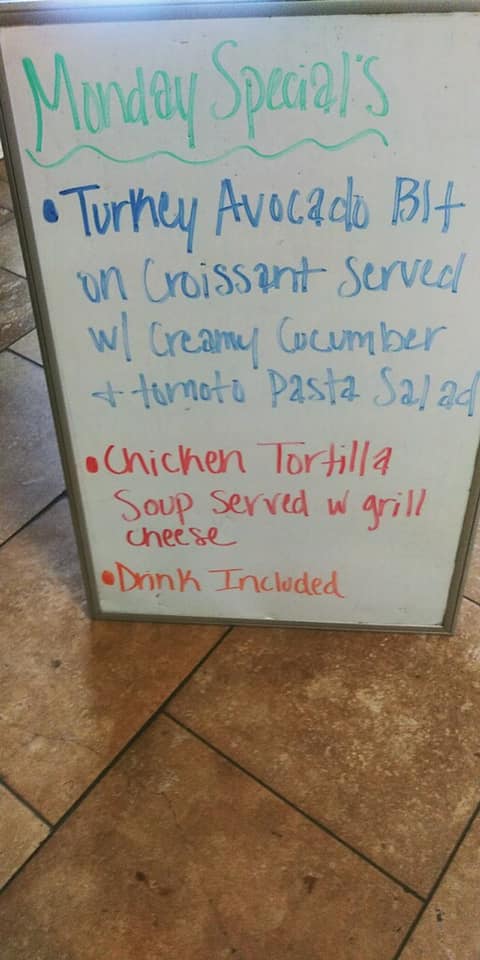 Monday Special's
• Turkey Avocado Blt
on Croissant Served
w/ Creamy Cucumber
+ tomoto Pasta Salad
• Chicken Tortilla
Soup Served w grill
cheese
• Drink Included